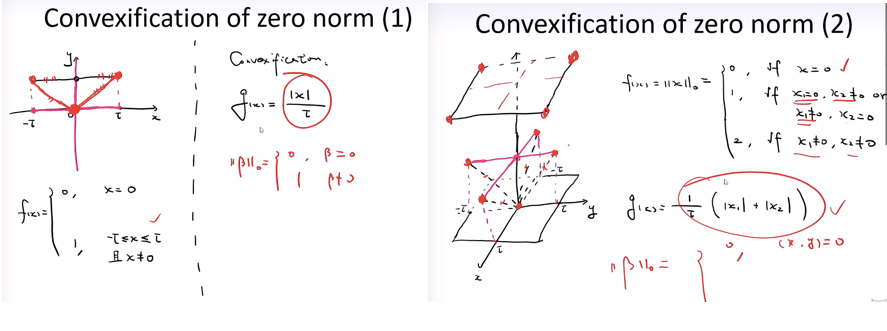 Convexification of zero norm (1)
y
-τ
0
τ
x
f(x) = { 0, x=0
1, -τ≤x≤τ
且 x≠0
Convexification.
g(x) = |x| / τ
||β||₀ = { 0, β=0
1 β≠0
Convexification of zero norm (2)
-τ
-τ
τ
y
τ
x
f(x) = ||x||₀ = { 0, if x=0 ✓
1, if x₁=0, x₂≠0 or
x₁≠0, x₂=0
2, if x₁≠0, x₂≠0
g(x) = 1/τ (|x₁| + |x₂|) ✓
||β||₀ = { 0, (x,y)=0